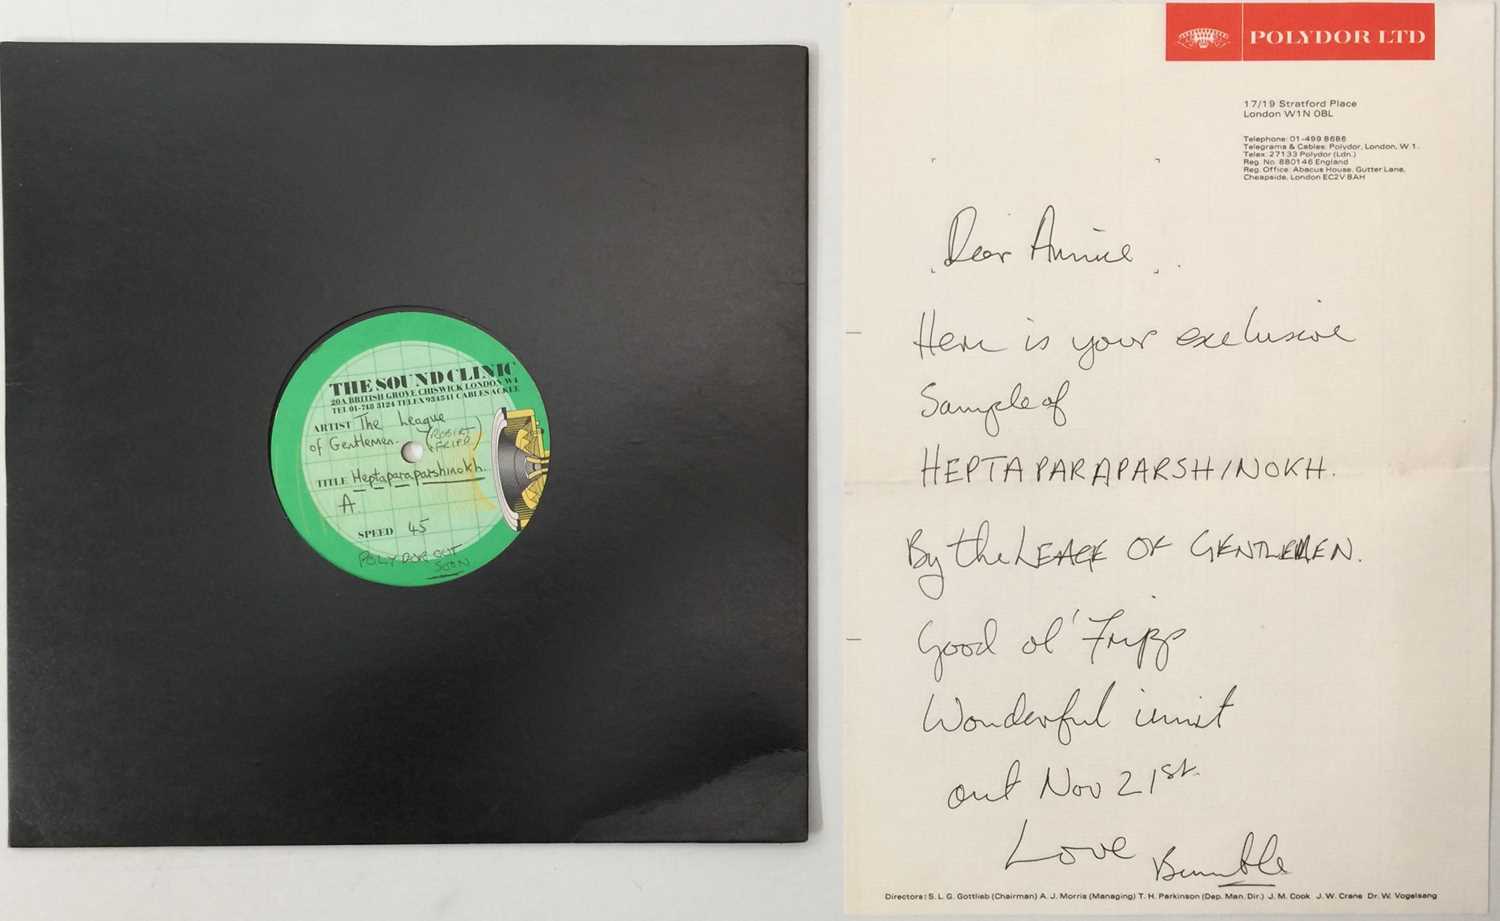 THE SOUND CLINIC
20A BRITISH GROVE CHISWICK LONDON W4
TEL 01-748 3124 TELEX 934541 CABLES ACKEE
ARTIST The League
of Gentlemen. (ROBERT
FRIPP)
TITLE Heptaparaparshinokh.
A.
SPEED 45
POLYDOR OUT
SOON
POLYDOR LTD
17/19 Stratford Place
London W1N 0BL
Telephone: 01-499 8686
Telegrams & Cables: Polydor, London, W.1.
Telex: 27133 Polydor (Ldn.)
Reg. No. 880146 England
Reg. Office: Abacus House, Gutter Lane,
Cheapside, London EC2V 8AH
Dear Annie
Here is your exclusive
Sample of
HEPTAPARAPARSHINOKH.
By the LEAGE OF GENTLEMEN.
Good ol' Fripp
Wonderful
out Nov 21st.
Love Bumble
Directors: S. L. G. Gottlieb (Chairman) A. J. Morris (Managing) T. H. Parkinson (Dep. Man. Dir.) J. M. Cook J. W. Crane Dr. W. Vogelsang